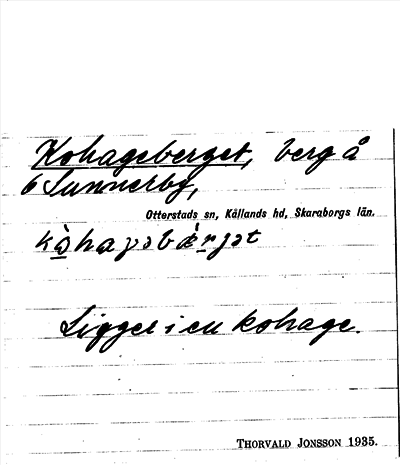 Kohageberget, berg å
6 Sunnerby,
Otterstads sn, Kållands hd, Skaraborgs län.
Ligger i en kohage.
THORVALD JONSSON 1935.